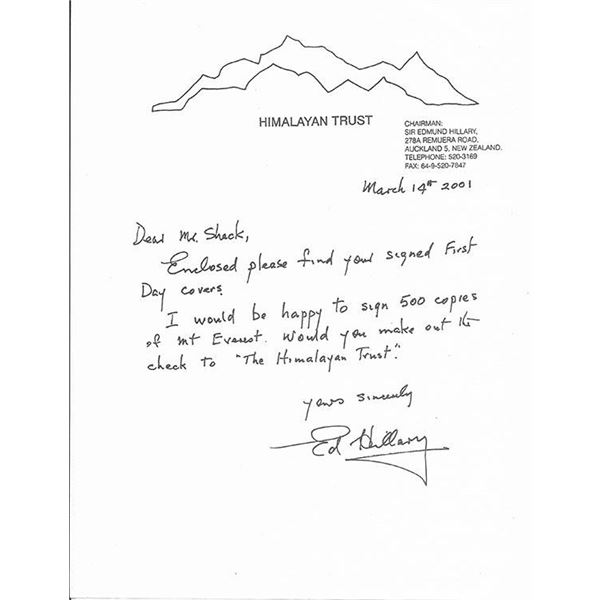 HIMALAYAN TRUST
CHAIRMAN:
SIR EDMUND HILLARY,
278A REMUERA ROAD,
AUCKLAND 5, NEW ZEALAND.
TELEPHONE: 520-3169
FAX: 64-9-520-7847
March 14th 2001
Dear Mr. Shack,
Enclosed please find your signed First
Day covers.
I would be happy to sign 500 copies
of Mt Everest. Would you make out the
check to "The Himalayan Trust".
yours sincerely
Ed Hillary